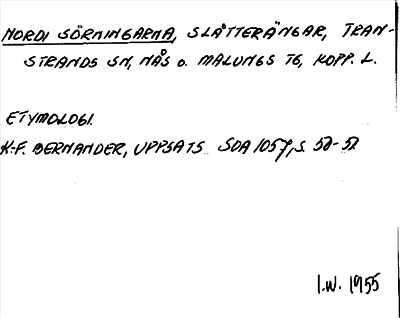 NORDI SÖRNINGARNA, SLÅTTERÄNGAR, TRAN-
STRANDS SN, NÅS O. MALUNGS TG, KOPP. L.
ETYMOLOGI.
K.-F. BERNANDER, UPPSATS SOA 1057, S. 50-51.
I.W. 1955